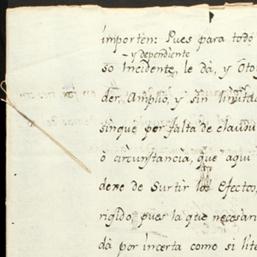 importen: Pues para todo
y dependiente
so Incidente, le dà, y Oto
der, Amplio, y sin limitac
sinque por falta de clausu
ò circunstancia, que aqui
dexe de Surtir los Efectos,
rigido, pues la que necesari
dà por incerta como si lite